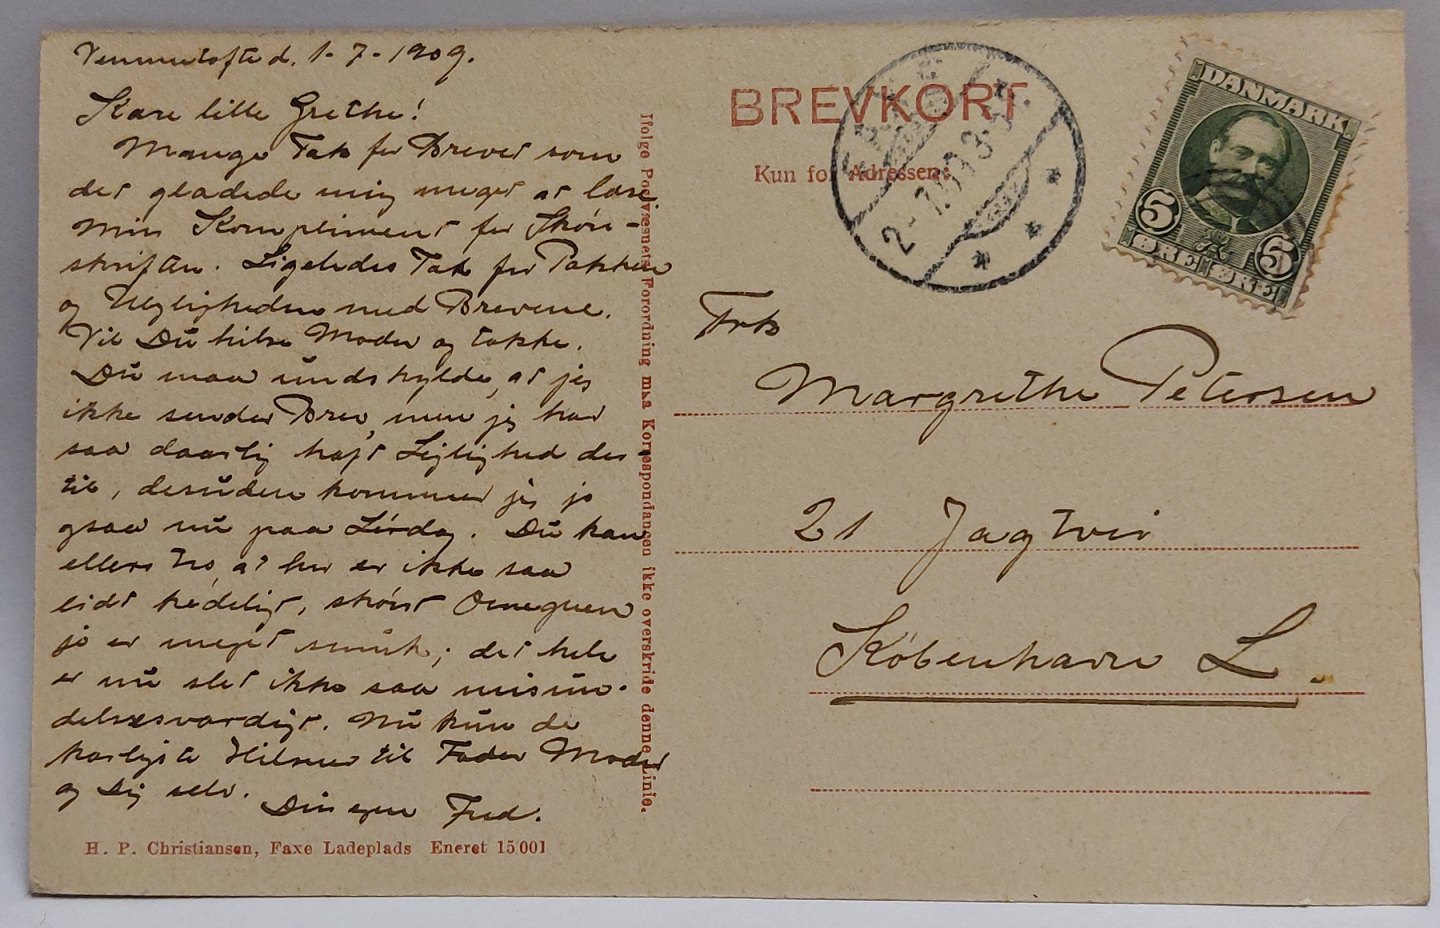 Vemmetofte d. 1-7-1909.
Kære lille Grethe!
Mange Tak for Brevet som
det glædede mig meget at læse
min Kompliment for Skøn-
skriften. Ligeledes Tak for Pakken
og Uleyligheden med Brevene.
Vil Du hilse Moder og takke.
Du maa undskylde, at jeg
ikke sender Brev, men jeg har
saa daarlig haft Lejlighed der-
til, desuden kommer jeg jo
gsaa nu paa Lørdag. Du kan
ellers tro, at her er ikke saa
lidt kedeligt, skønt Omegnen
jo er meget smuk; det hele
er nu slet ikke saa misun-
delsesværdigt. Nu kun de
kærligste Hilsner til Fader Moder
og Dig selv.
Din egen Fred.
H. P. Christiansen, Faxe Ladeplads Eneret 15001
Ifølge Postvæsnets Forordning maa Korrespondancen ikke overskride denne Linie.
BREVKORT
Kun for Adressen:
2-7.09.3-
DANMARK
5 5
ØRE ØRE
Frk
Margrethe Petersen
21 Jagtvei
København L.